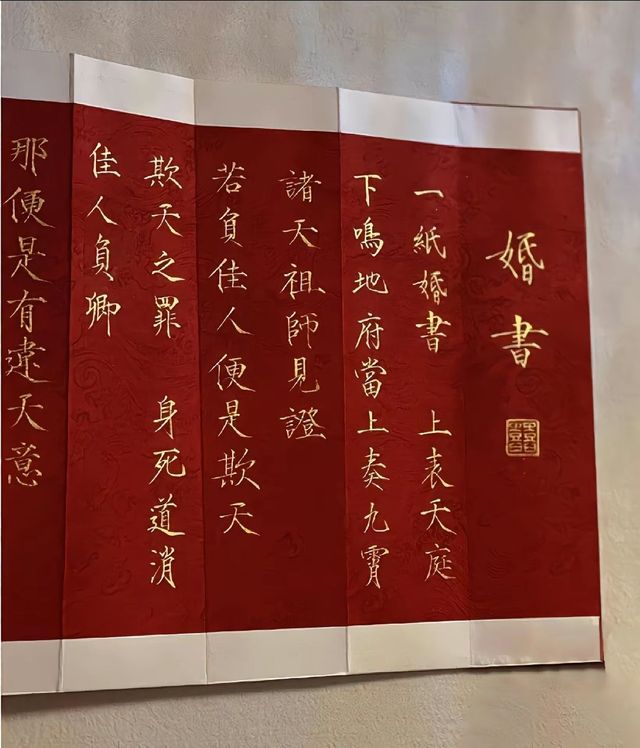 婚書
一紙婚書 上表天庭
下鳴地府當上奏九霄
諸天祖師見證
若負佳人便是欺天
欺天之罪 身死道消
佳人負卿
那便是有違天意